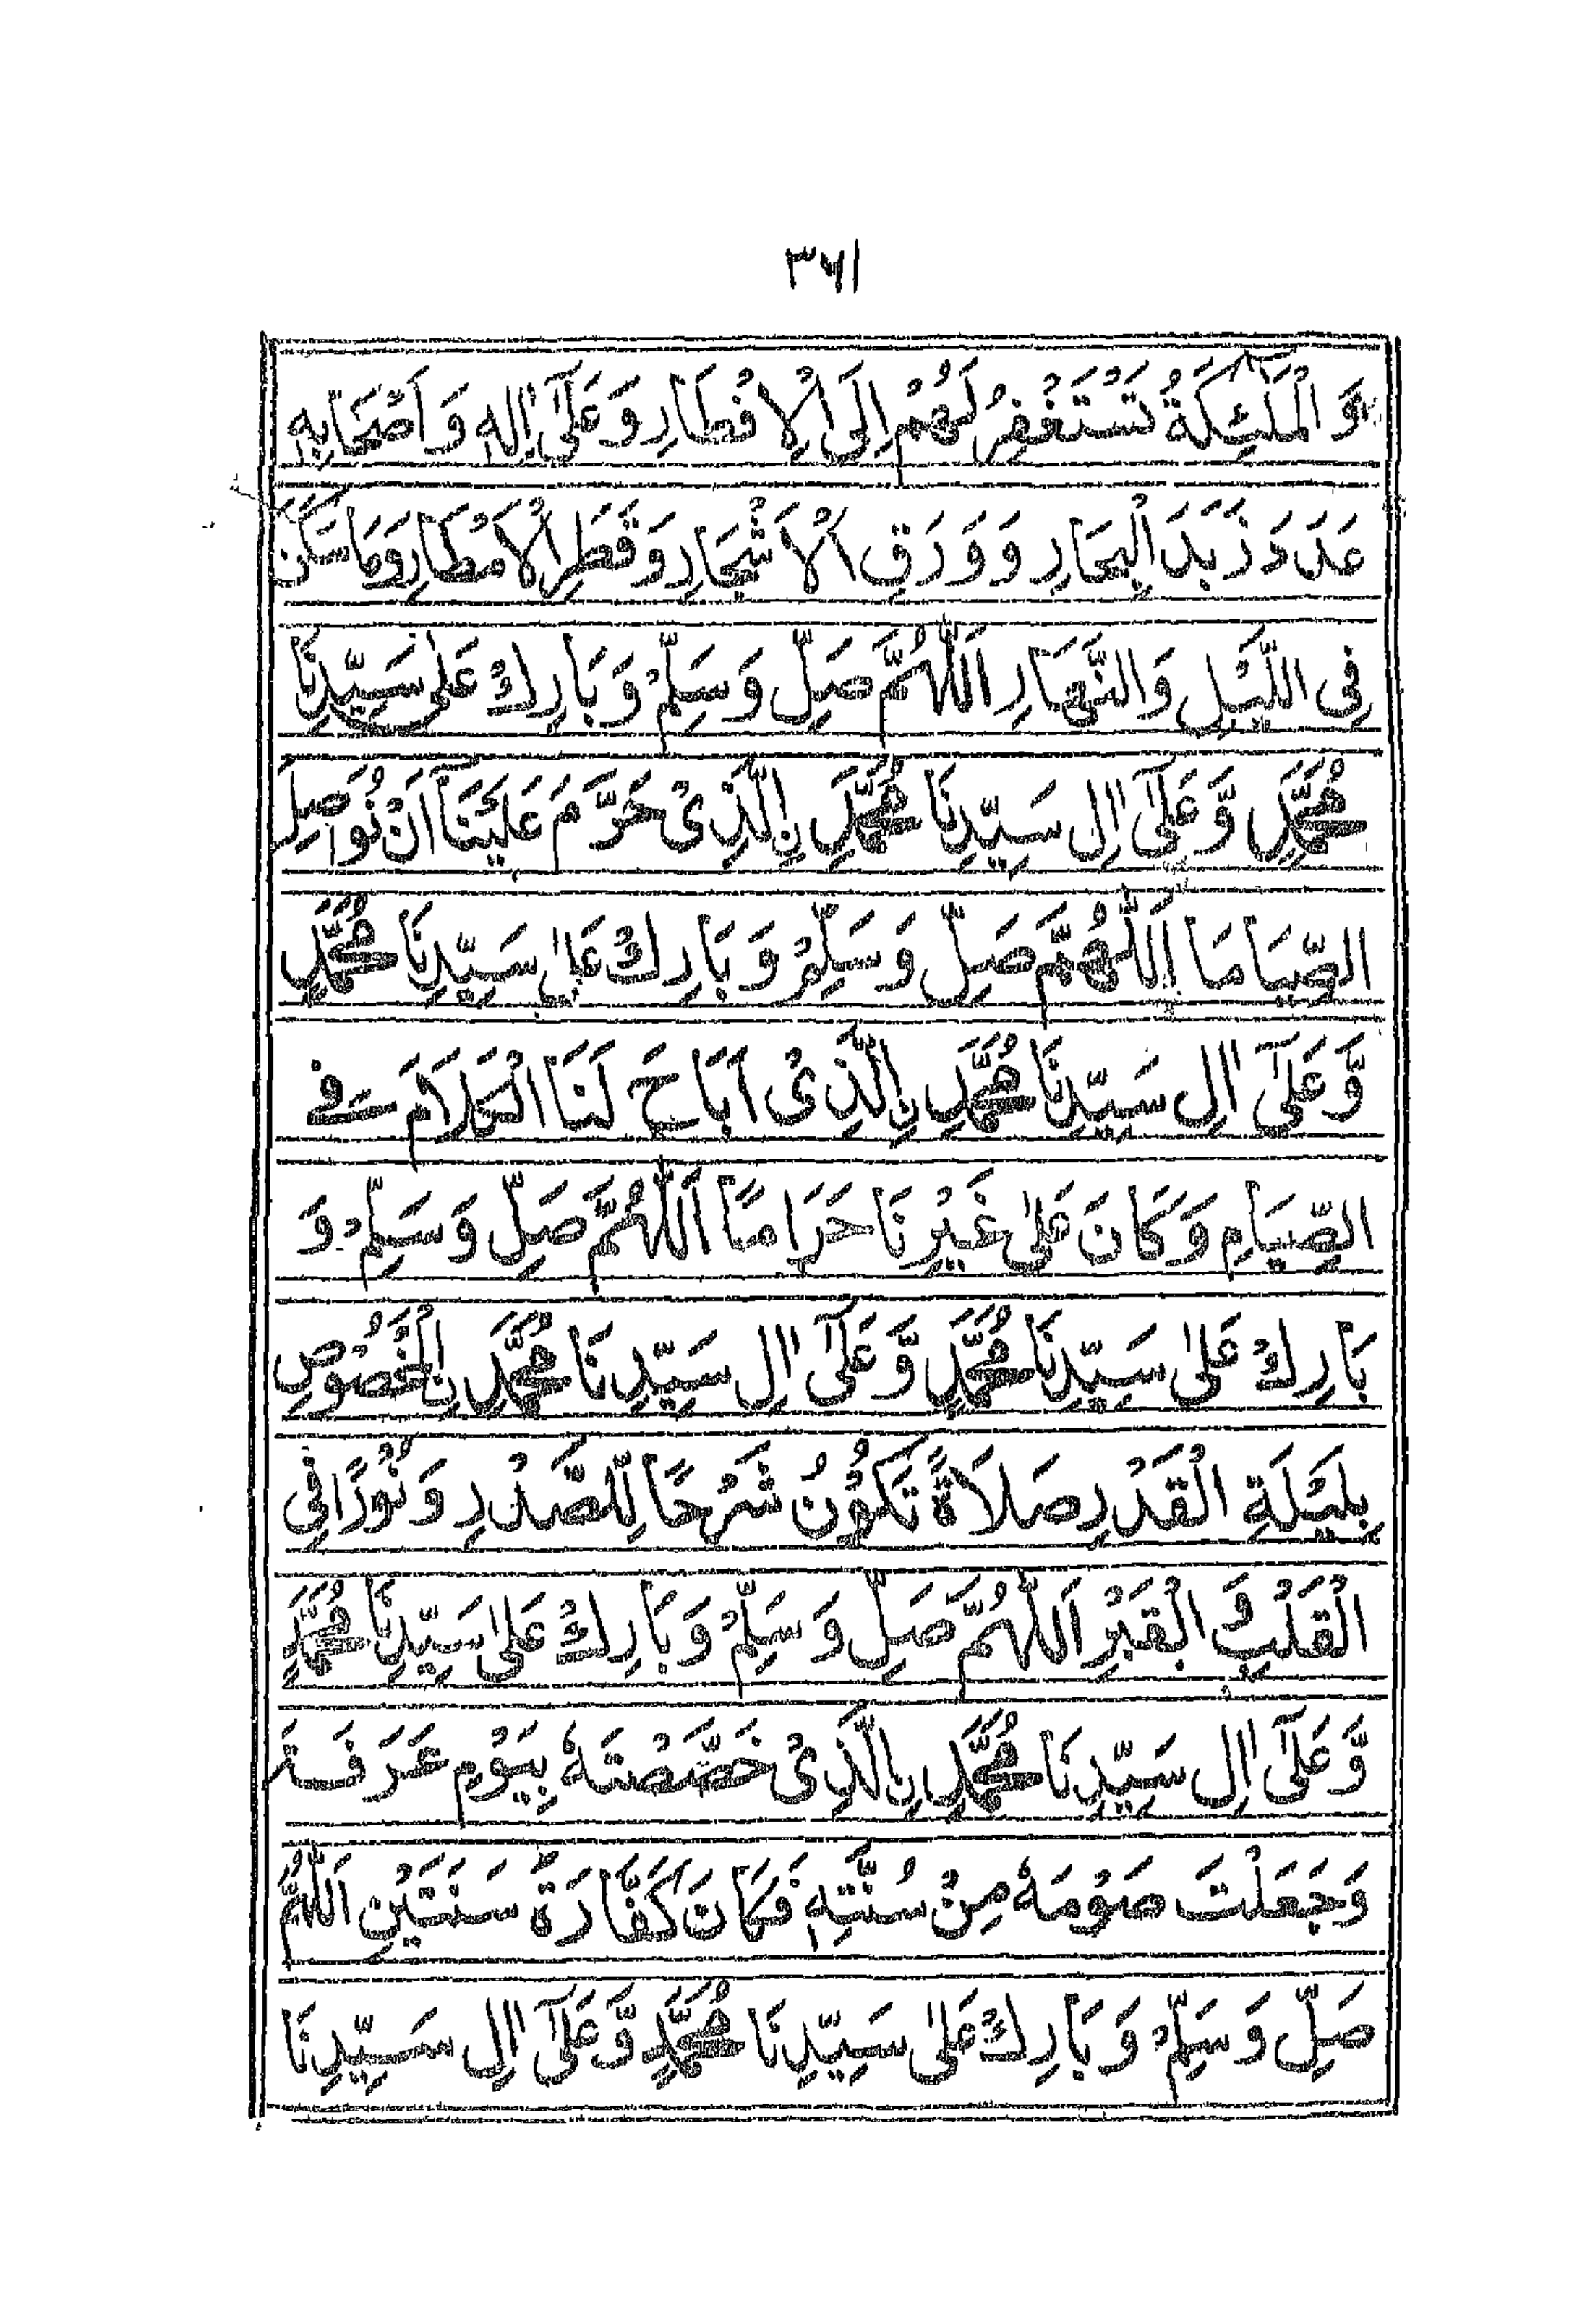 ۳۶۱
وَ الْمَلٰٓئِكَةُ تَسْتَغْفِرُ لَهُمْ اِلَى الْاِفْطَارِ وَ عَلٰٓى اٰلِهٖ وَ اَصْحَابِهٖ
عَدَدَ زَبَدَ الْبِحَارِ وَ وَرَقِ الْاَشْجَارِ وَ قَطْرِ الْاَمْطَارِ وَمَا سَكَنَ
فِى اللَّيْلِ وَ النَّهَارِ اَللّٰهُمَّ صَلِّ وَ سَلِّمْ وَ بَارِكْ عَلٰى سَيِّدِنَا
مُحَمَّدٍ وَّ عَلٰٓى اٰلِ سَيِّدِنَا مُحَمَّدِ نِ الَّذِىْ حَرَّمَ عَلَيْنَآ اَنْ نُوَاصِلَ
الصِّيَامَا اَللّٰهُمَّ صَلِّ وَ سَلِّمْ وَ بَارِكْ عَلٰى سَيِّدِنَا مُحَمَّدٍ
وَّ عَلٰٓى اٰلِ سَيِّدِنَا مُحَمَّدِ نِ الَّذِىْ اَبَاحَ لَنَا الْكَلَامَ فِى
الصِّيَامِ وَ كَانَ عَلٰى غَيْرِنَا حَرَامًا اَللّٰهُمَّ صَلِّ وَ سَلِّمْ وَ
بَارِكْ عَلٰى سَيِّدِنَا مُحَمَّدٍ وَّ عَلٰٓى اٰلِ سَيِّدِنَا مُحَمَّدِ نِ الْمَخْصُوْصِ
بِلَيْلَةِ الْقَدْرِ صَلَاةً تَكُوْنُ شَرْحًا لِلصَّدْرِ وَ نُوْرًا فِى
الْقَلْبِ وَ الْقَبْرِ اَللّٰهُمَّ صَلِّ وَ سَلِّمْ وَ بَارِكْ عَلٰى سَيِّدِنَا مُحَمَّدٍ
وَّ عَلٰٓى اٰلِ سَيِّدِنَا مُحَمَّدِ نِ الَّذِىْ خَصَّصْتَهٗ بِيَوْمِ عَرَفَةَ
وَ جَعَلْتَ صَوْمَهٗ مِنْ سُنَّتِهٖ فَكَانَ كَفَّارَةَ سَنَتَيْنِ اَللّٰهُمَّ
صَلِّ وَ سَلِّمْ وَ بَارِكْ عَلٰى سَيِّدِنَا مُحَمَّدٍ وَّ عَلٰٓى اٰلِ سَيِّدِنَا